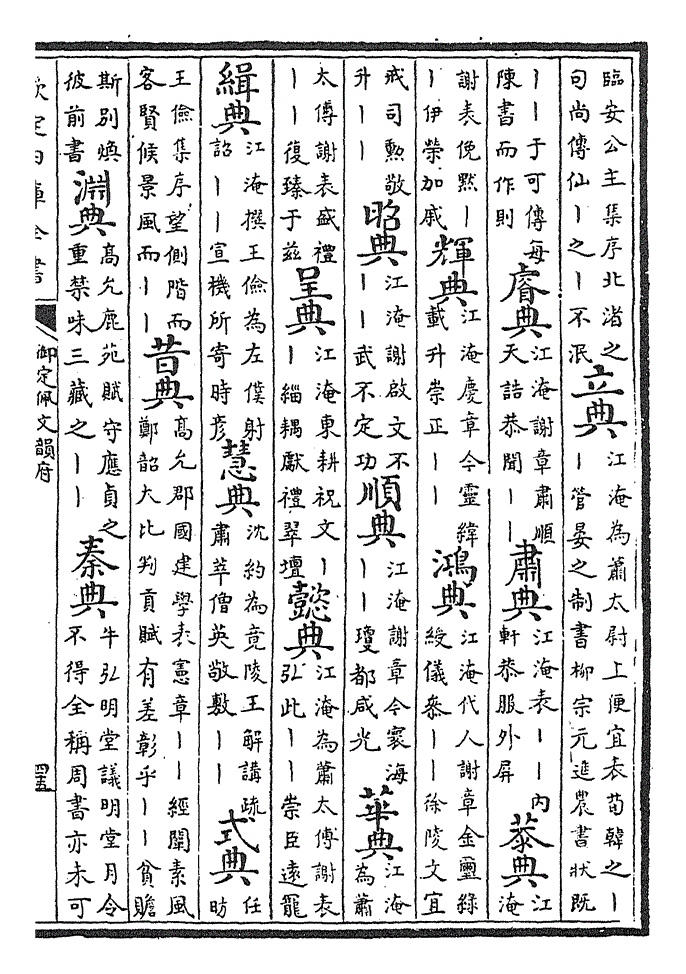 臨安公主集序北渚之
句尚傳仙丨之丨不泯
立典
江淹為蕭太尉上便宜表荀韓之丨
丨管晏之制書柳宗元進農書狀既
丨丨于可傳每
陳書而作則
睿典
江淹謝章肅順
天誥恭聞丨丨
肅典
江淹表丨丨内
軒恭服外屏
恭典
江
淹
謝表俛黙丨
丨伊榮加戚
輝典
江淹慶章今靈緯
載升崇正丨丨
鴻典
江淹代人謝章金璽緑
綬儀叅丨丨徐陵文宜
戒司勲敬
升丨丨
昭典
江淹謝啟文不
丨丨武不定功
順典
江淹謝章今寰海
丨丨瓊都咸光
華典
江淹
為蕭
太傅謝表盛禮
丨丨復臻于兹
呈典
江淹東耕祝文丨
丨緇耦獻禮翠壇
懿典
江淹為蕭太傅謝表
弘此丨丨崇臣遠寵
緝典
江淹撰王儉為左僕射
詔丨丨宣機所寄時彦
慧典
沈約為竟陵王解講疏
肅萃僧英敬敷丨丨
式典
任
昉
王儉集序望側階而
客賢候景風而丨丨
昔典
高允郡國建學表憲章丨丨經闡素風
鄭韶大比判貢賦有差彰乎丨丨貧贍
斯别煥
彼前書
淵典
高允鹿苑賦守應貞之
重禁味三藏之丨丨
秦典
牛弘明堂議明堂月令
不得全稱周書亦未可
欽定四庫全書
御定佩文韻府